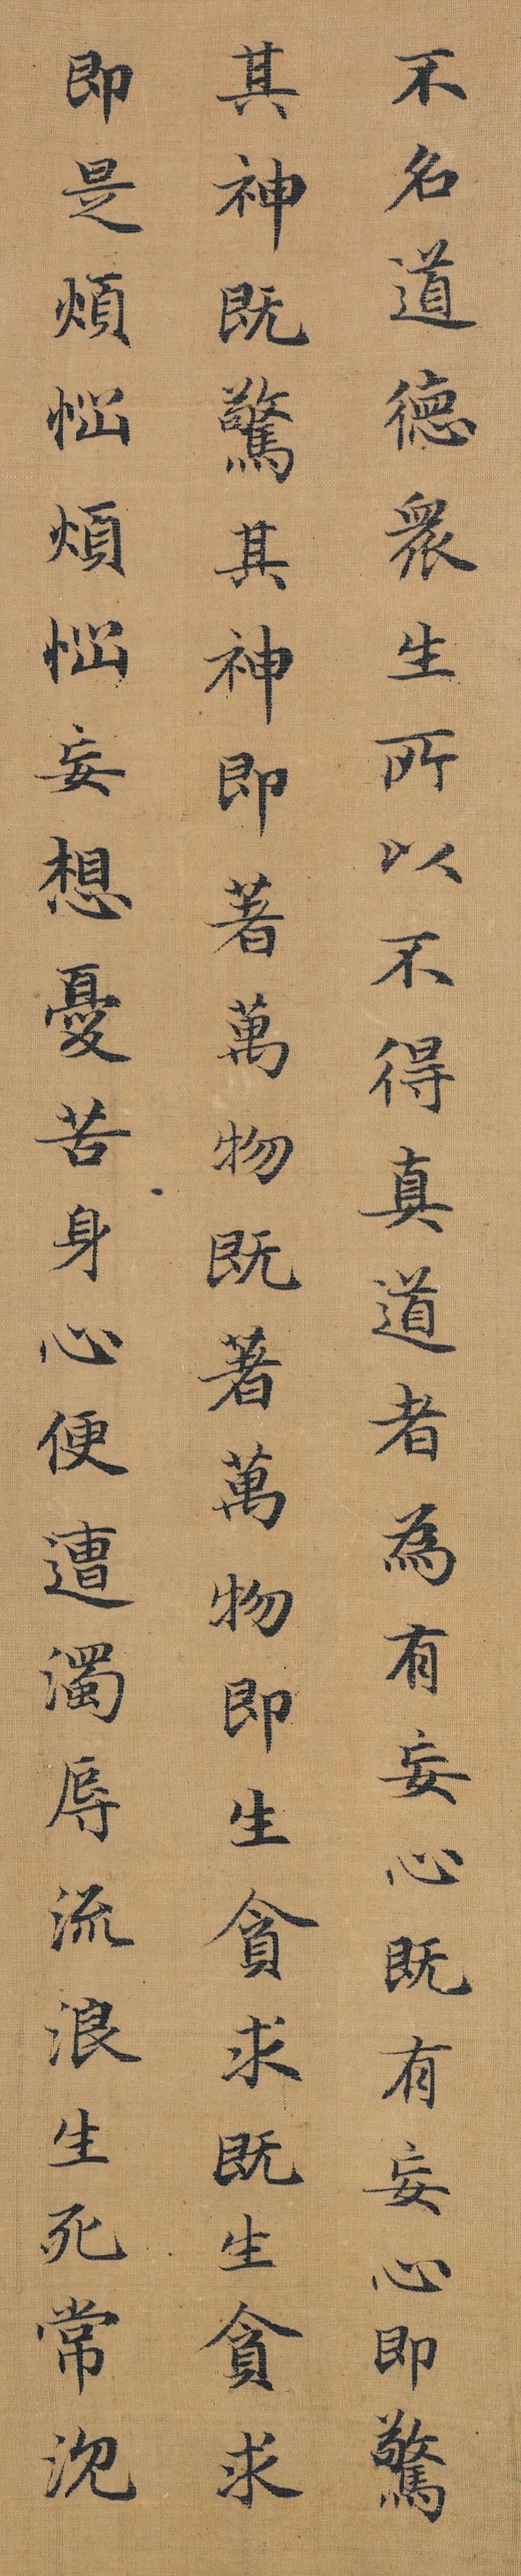 不名道德衆生所以不得真道者為有妄心既有妄心即驚
其神既驚其神即著萬物既著萬物即生貪求既生貪求
即是煩惱煩惱妄想憂苦身心便遭濁辱流浪生死常沉